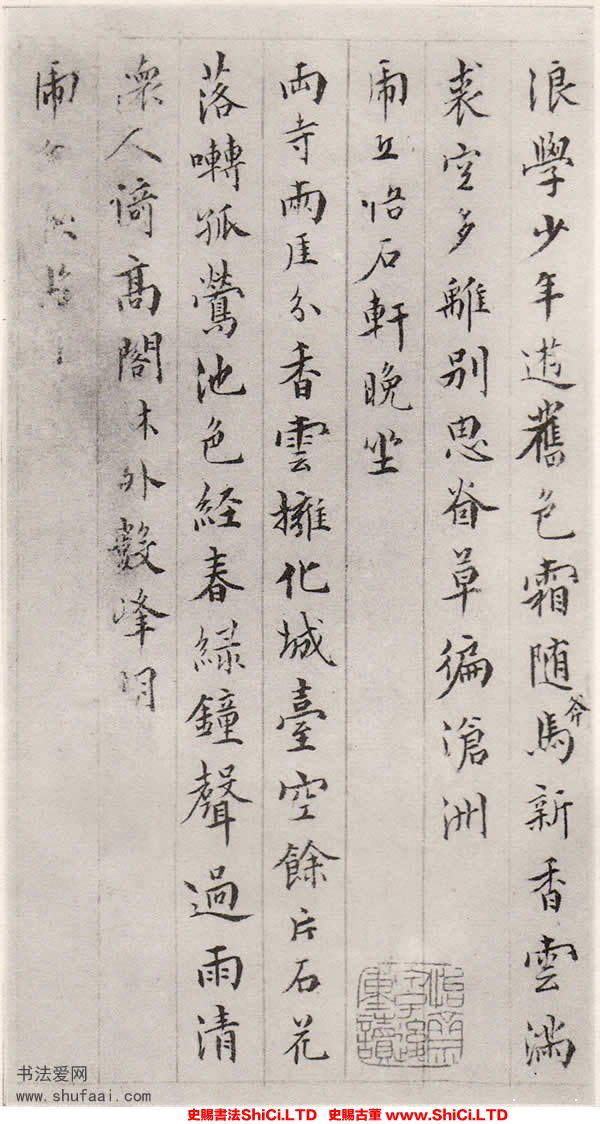 浪學少年遊舊色霜随馬新香雲滿
裘空多離別思眷草徧滄洲
丘悟石軒晚坐
兩寺兩厓分香雲擁化城臺空餘片石花
落囀孤鶯池色経春緑鐘聲過雨清
人倚髙閣木外數峰明
书法爱网
www.shufaai.com
史賜書法ShiCi.LTD 史賜古董 www.ShiCi.LTD